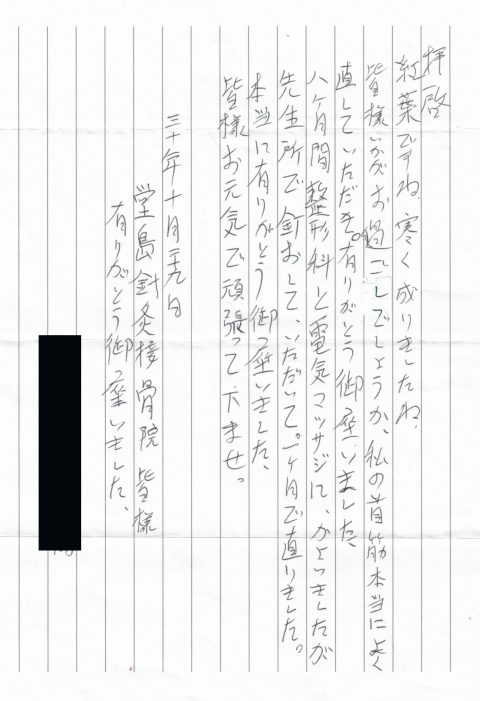 拝啓
紅葉ですね 寒く成りましたね、
皆様いかがお過ごしでしょうか、私の首筋本当によく
直していただき、有りがとう御座いました、
八ヶ月間整形科と電気マッサジに、かよっきしたが
先生所で針おして、いただいて。一ヶ月で直りました。
本当に有りがとう御座いました、
皆様お元気で頑張って下ませ。
三十年十月二十九日
堂島針灸接骨院 皆様
有りがとう御座いました、